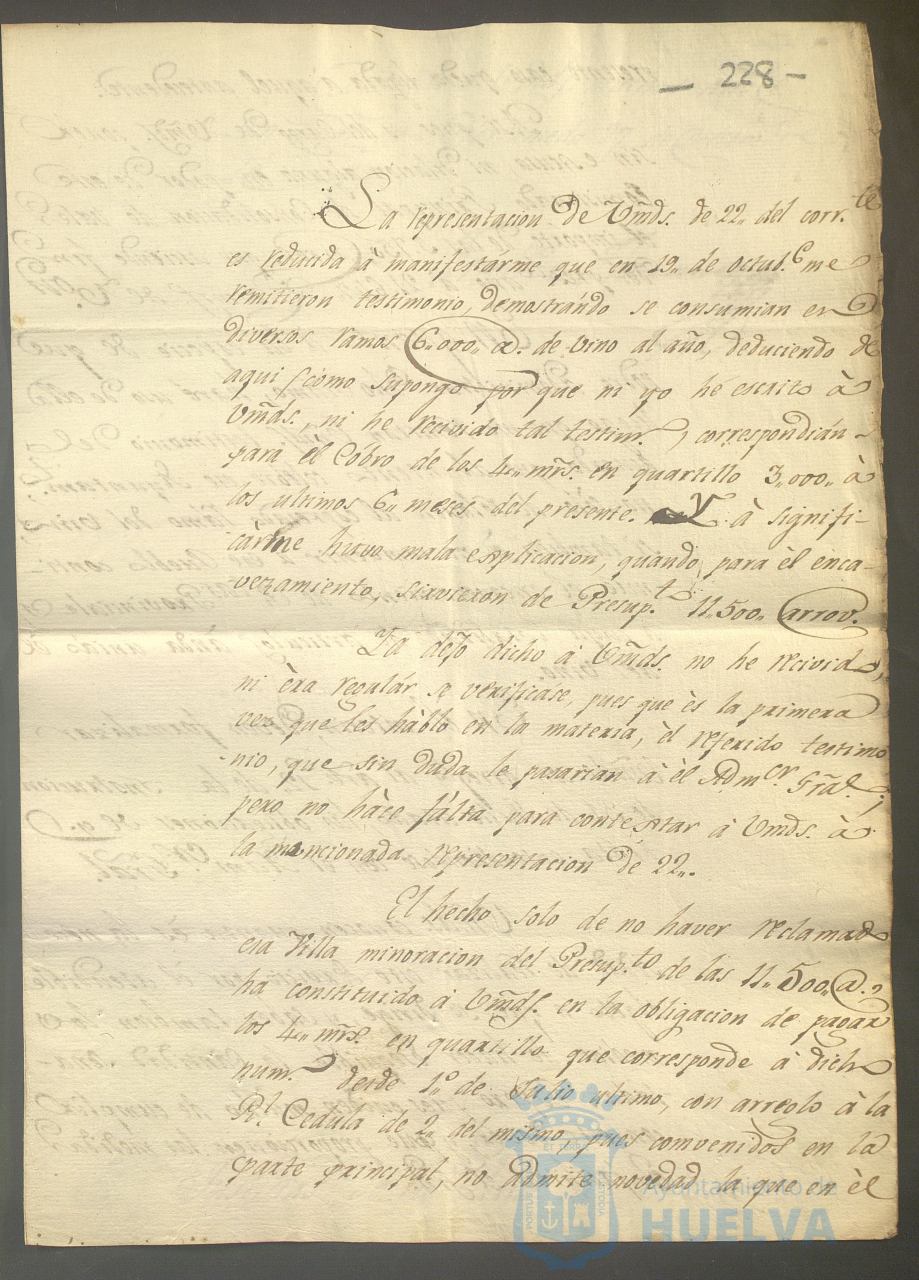 — 228 —
La representacion de Vm̃ds. de 22,, del corr.te
es reducida á manifestarme que en 19,, de octub.e me
remitieron testimonio, demostrándo se consumian en
diversos ramos 6,,000,, @. de vino al año, deduciendo de
aqui (cómo supongo por que ni yo he escrito à
Vm̃ds., ni he recivido tal testim.o) correspondián-
para él Cóbro de los 4,, mrs. en quartillo 3,,000,, à
los ultimos 6,, meses del presente. Y à signifi-
cárme huvo mala explicacion, quando para èl enca-
vezamiento, sirvieron de Presup.to 11,,500,, arrov.
Ya dejo dicho à Vm̃ds. no he recivido,
ni èra regulár se verificase, pues que ès la primera
vez que les háblo en la materia, èl referido testimo
nio, que sin duda le pasarian à èl Adm.or Gr̃al.;
pero no hàce fálta para contextar à Vmds. à
la mencionada representacion de 22,,.
El hecho solo de no haver reclamado
esa Villa minoracion del Presup.to de las 11,,500,, @.,
ha constituido à Vm̃ds. en la obligacion de pagar
los 4,, mrs. en quartillo que corresponde à dicho
num.o desde 1.o de Julio ultimo, con arreglo à la
R.l Cedula de 2,, del mismo, pues convenidos en la
parte principal, no admite novedad la que en èl
Ayuntamiento de
HUELVA